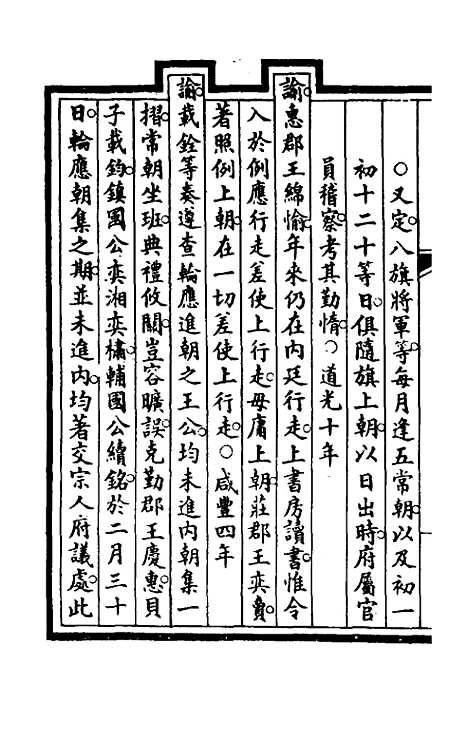 ○又定。八旗將軍等。每月逢五常朝。以及初一
初十二十等日。俱隨旗上朝。以日出時。府屬官
員稽察。考其勤惰。○道光十年
諭。惠郡王綿愉。年來仍在內廷行走。上書房讀書。惟令
入於例應行走差使上行走。毋庸上朝。莊郡王奕賫。
著照例上朝。在一切差使上行走。○咸豐四年
諭。載銓等奏遵查輪應進朝之王公。均未進內朝集一
摺。常朝坐班。典禮攸關。豈容曠誤。克勤郡王慶惠。貝
子載鈞。鎮國公奕湘。奕橚。輔國公續銘。於二月三十
日。輪應朝集之期。並未進內。均著交宗人府議處。此